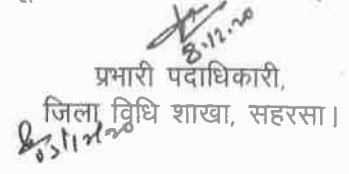 8.12.20
प्रभारी पदाधिकारी,
जिला विधि शाखा, सहरसा।